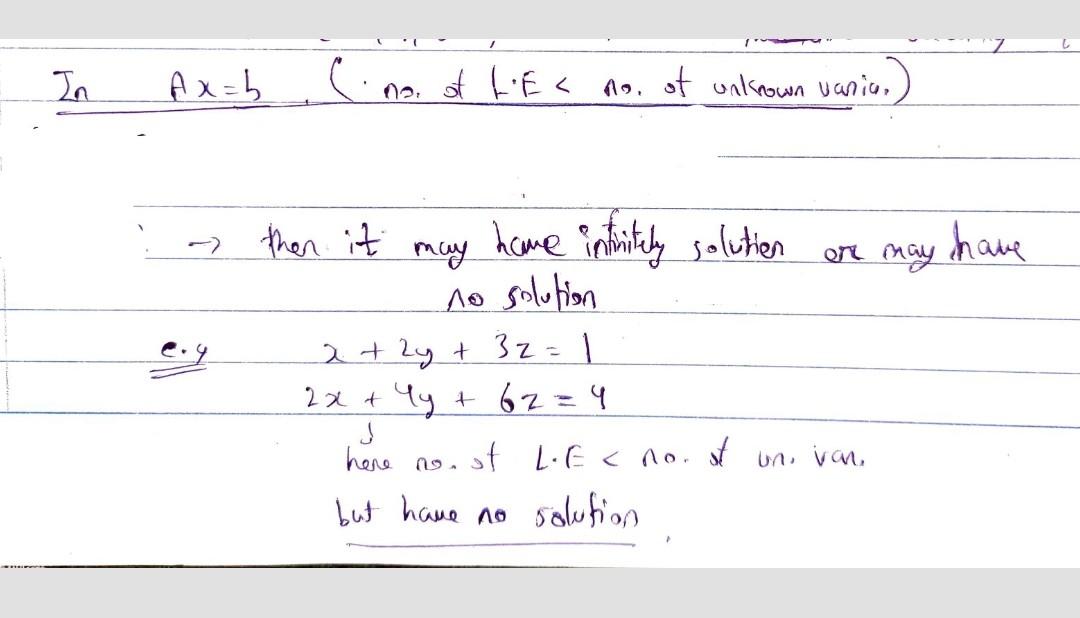 In Ax=b, (∵ no. of L.E < no. of unknown varia.)
→ then it may have infinitely solution or may have
no solution
e.g x + 2y + 3z = 1
2x + 4y + 6z = 4
here no. of L.E < no. of un. var.
but have no solution.